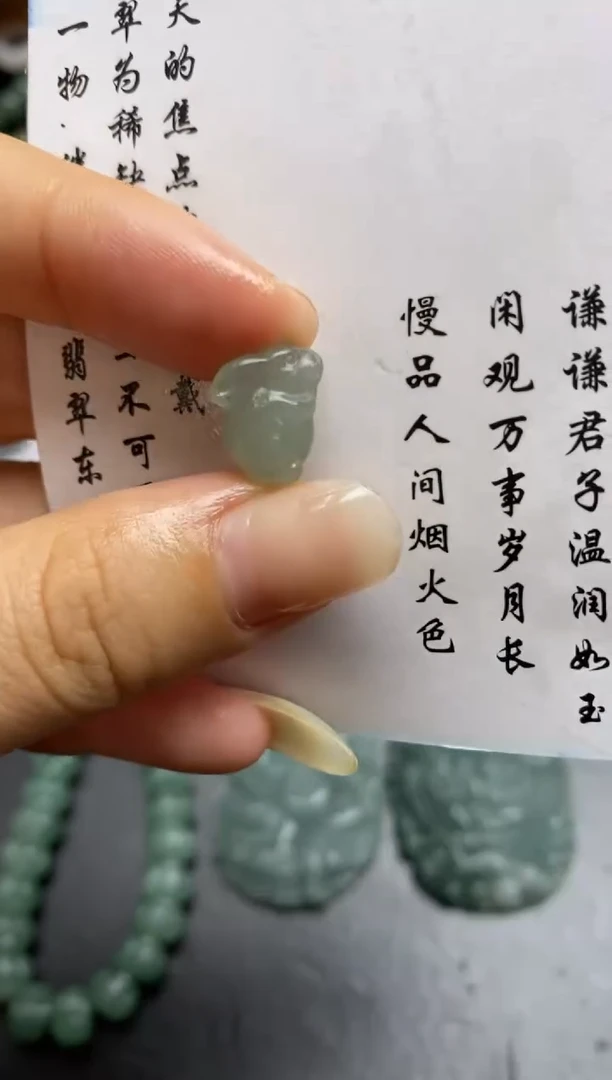 谦谦君子温润如玉
闲观万事岁月长
慢品人间烟火色
的焦点 戴
翠为稀缺 一不可
一物· 翡翠东